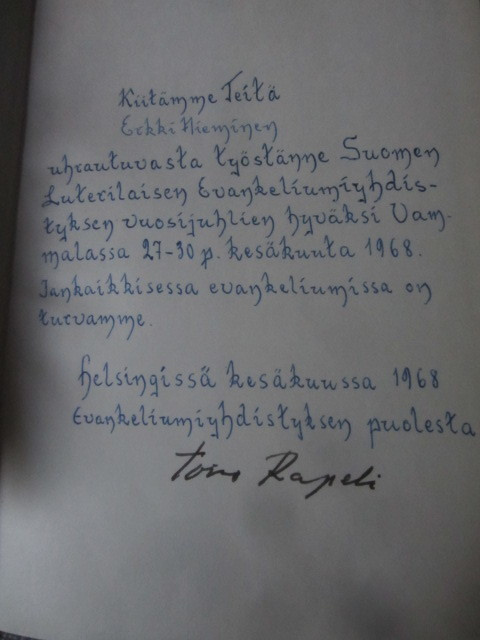 Kiitämme Teitä
Erkki Nieminen
uhrautuvasta työstänne Suomen
Luterilaisen Evankeliumiyhdis-
tyksen vuosijuhlien hyväksi Vam-
malassa 27-30 p. kesäkuuta 1968.
Iankaikkisessa evankeliumissa on
turvamme.
Helsingissä kesäkuussa 1968
Evankeliumiyhdistyksen puolesta
Toivo Rapeli